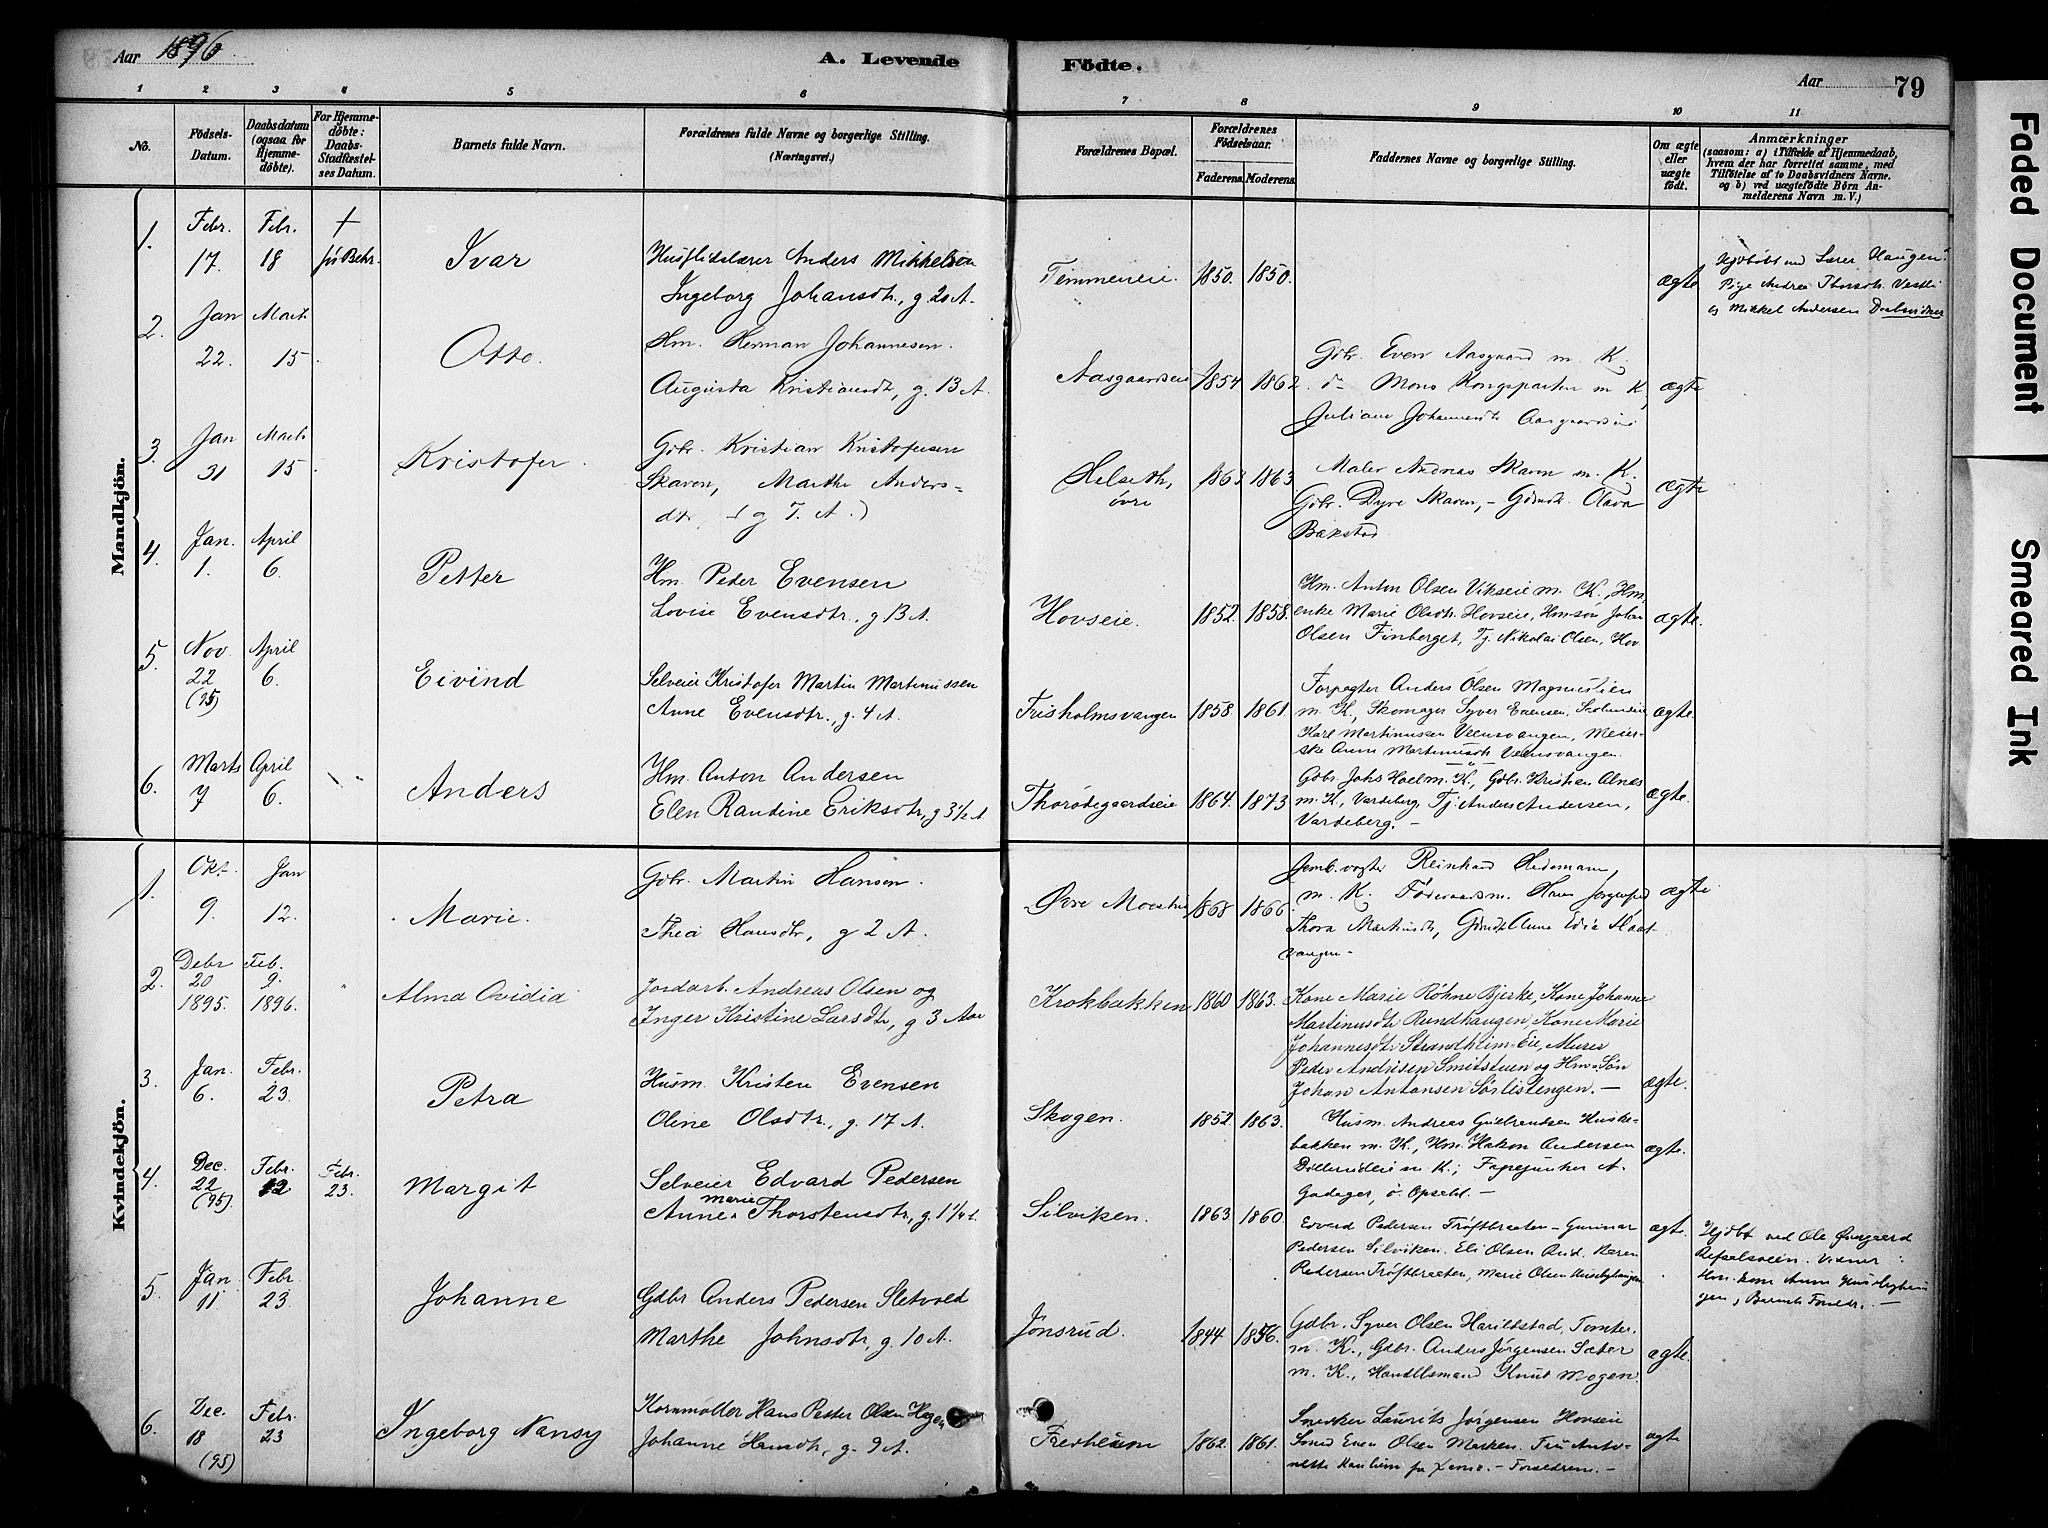 Aar 1896
A. Levende
Födte.
Aar
79
1 2 3 4 5 6 7 8 9 10 11
No.
Födsels-
Datum.
Daabsdatum
(ogsaa for
Hjemme-
döbte).
For Hjemme-
döbte:
Daabs-
Stadfæstel-
ses Datum.
Barnets fulde Navn.
Forældrenes fulde Navne og borgerlige Stilling.
(Næringsvei.)
Forældrenes Bopæl.
Forældrenes
Födselsaar.
Faderens.
Moderens.
Faddernes Navne og borgerlige Stilling.
Om ægte
eller
uægte
födt.
Anmærkninger
(saasom: a) i Tilfælde af Hjemmedaab,
hvem der har forrettet samme, med
Tilföielse af to Daabsvidners Navne.
og b) ved uægtefödte Börn An-
melderens Navn m. V.)
Mandkjön.
1. Febr. 17. Febr. 18
Ivar
Husflidslærer Anders Mikkelsen
Ingeborg Johansdtr, g 20 A.
1850. 1850.
ægte
Hjdöbt ved Lærer Haugen.
Pige Andrea Thorsdtr.
og Mikkel Andersen
2. Jan 22. Marts 15
Otto.
Hm. Herman Johannesen.
Augusta Kristiansdtr, g. 13 A.
Aasgaardseie 1854 1862.
Gbr. Even Aasgaard m. K.
do Mons Kongsparten m K,
Juliane Johannesdtr Aasgaardseie
ægte
3. Jan 31 Marts 15
Kristofer.
Gbr. Kristian Kristofersen
Skaren, Marthe Anders-
dtr, (g 7. A.)
Helseth,
övre
1863 1863
Maler Andreas Skaren m. K.
Gbr. Dyre Skaren, - Gdmdtr. Olava
Bakstad.
ægte
4. Jan. 1. April 6.
Petter
Hm. Peder Evensen
Lovise Evensdtr., g 13 A.
Hovseie. 1852. 1858.
Hm. Anton Olsen Vikseie m. K., Hm.
enke Marie Olsdtr. Hovseie, Hmsön Johan
Olsen Finberget, Tj. Nikolai Olsen, Hov
ægte.
5. Nov. 22 (95) April 6.
Eivind
Selveier Kristofer Martin Martinussen
Anne Evensdtr., g. 4 A.
Frisholmsvangen 1858. 1861.
Forpagter Anders Olsen
m. K., Skomager Syver Evensen,
Karl Martinussen Veensvangen, Meier-
ske Anne Martinusdtr. Veensvangen.
ægte.
6. Marts 7 April 6.
Anders
Hm. Anton Andersen
Elen Randine Eriksdtr., g 3 1/2 A
Thorödegaardseie 1864. 1873.
Gdbr. Johs Hoel m. K., Gdbr. Kristian Alnæs
m. K., Vardeberg, Tj. Anders Andersen,
Vardeberg. -
ægte.
Kvindekjön.
1. Okt. 9. Jan 12.
Marie.
Gbr. Martin Hansen.
Thea Hansdtr, g 2 A.
Øvre 1868 1866.
Reinhard Hedemann
m. K.
Thora Martinsdtr,
vangen-
ægte.
2. Debr 20 1895. Feb. 9. 1896.
Alma Ovidia
Jordarb. Andreas Olsen og
Inger Kristine Larsdtr, g 3 Aar
Krokbakken 1860 1863.
Kone Marie Röhne Bjerke, Kone Johanne
Martinusdtr Rundhaugen, Kone Marie
Johannesdtr Strandheim-Eie, Murer
Peder Andersen Smitstuen og Hm-Sön
Johan Antonsen Sörlistengen. -
ægte.
3. Jan. 6. Febr. 23.
Petra
Husm. Kristen Evensen
Oline Olsdtr., g. 17 A.
Skogen. 1852. 1863.
Husm. Andreas Gulbrandsen Huske-
bakken m. K., Hm. Hakon Andersen
m. K.; Fanejunker A.
ö. Opsahl. -
ægte.
4. Dec. 22 (95). Febr. 12 Febr. 23.
Margit
Selveier Edvard Pedersen
Anne Marie Thorstensdtr., g. 1 1/4 A.
Silviken. 1863. 1860.
Edvard Pedersen Tröftbraaten - Gunnar
Pedersen Silviken. Eli Olsen Rud. Karen
Pedersen Tröftbraaten, Marie Olsen Husebyhaugen
ægte.
Hjdöbt ved Ole
Hm. kone Anne Husebyhau-
gen, Barnets Foreldr. -
5. Jan. 11. Febr 23
Johanne
Gdbr Anders Pedersen Sletvold
Marthe Johnsdtr., g. 10 A.
Jönsrud. 1844 1856.
Gdbr. Syver Olsen Harildstad, Tomter.
m. K., Gdbr. Anders Jörgensen Sæter
m. K., Handelsmand Knut Mogen.
ægte.
6. Dec. 18 (95) Febr. 23
Ingeborg Nansy
Kornmöller Hans Petter Olsen Hagen
Johanne Hansdtr., g. 9 A.
Fredheim 1862. 1861.
Snedker Laurits Jörgensen Hovseie
Smed Even Olsen Marken. Fru Anto-
nette - Foreldrene. -
ægte
Faded Document
Smeared Ink